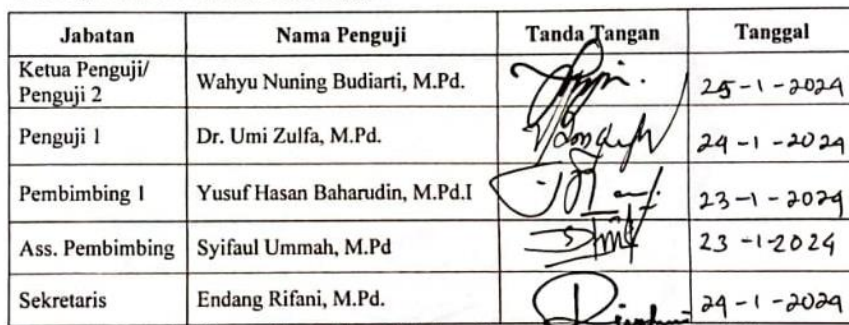 Jabatan Nama Penguji Tanda Tangan Tanggal
Ketua Penguji/
Penguji 2 Wahyu Nuning Budiarti, M.Pd. 25-1-2024
Penguji 1 Dr. Umi Zulfa, M.Pd. 24-1-2024
Pembimbing 1 Yusuf Hasan Baharudin, M.Pd.I 23-1-2024
Ass. Pembimbing Syifaul Ummah, M.Pd 23-1-2024
Sekretaris Endang Rifani, M.Pd. 24-1-2024